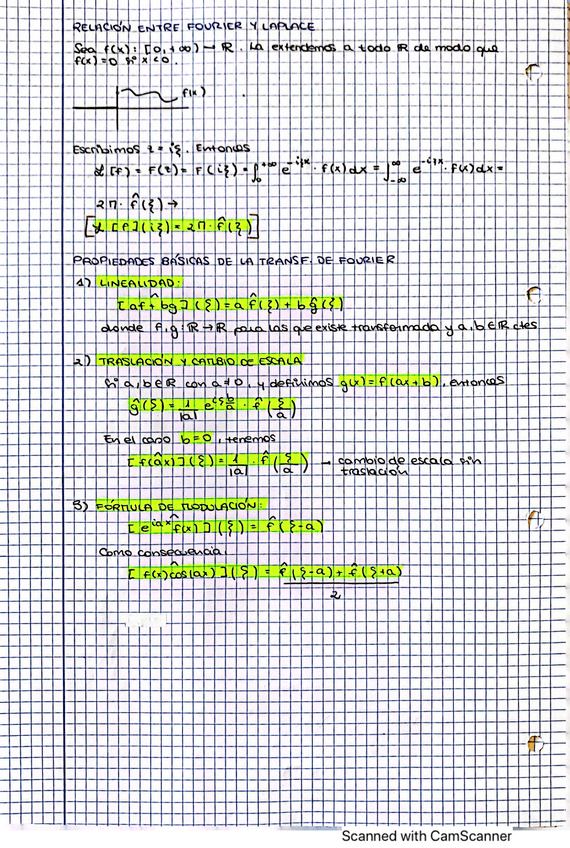 RELACIÓN ENTRE FOURIER Y LAPLACE
Sea f(x): [0,+∞) → ℝ. La extendemos a todo ℝ de modo que
f(x)=0 si x<0.
f(x)
Escribimos z = iξ. Entonces
ℒ[f] = F(z) = F(iξ) = ∫₀^{+∞} e^{-iξx} · f(x)dx = ∫_{-∞}^{∞} e^{-iξx} · f(x)dx =
2π · f̂(ξ) →
[ℒ[f](iξ) = 2π · f̂(ξ)]
PROPIEDADES BÁSICAS DE LA TRANSF. DE FOURIER
1) LINEALIDAD:
[af + bg]^(ξ) = a f̂(ξ) + b ĝ(ξ)
donde f,g: ℝ → ℝ para las que existe transformada y a,b ∈ ℝ ctes
2) TRASLACIÓN Y CAMBIO DE ESCALA
Si a,b ∈ ℝ con a ≠ 0, y definimos g(x) = f(ax+b), entonces
ĝ(ξ) = 1/|a| e^{iξb/a} · f̂(ξ/a)
En el caso b=0, tenemos
[f(ax)]^(ξ) = 1/|a| · f̂(ξ/a) → cambio de escala sin
traslación
3) FÓRMULA DE MODULACIÓN:
[e^{iax} f(x)]^(ξ) = f̂(ξ-a)
Como consecuencia,
[f(x)cos(ax)]^(ξ) = f̂(ξ-a) + f̂(ξ+a)
2
Scanned with CamScanner